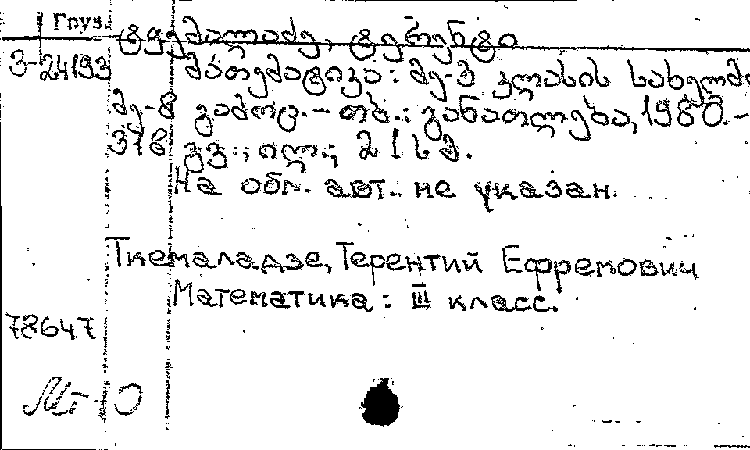 Груз.
ტყემალაძე, ტერენტი
3-24193 მათემატიკა: მე-3 კლასის სახელმძ
მე-8 გამოც.- თბ.: განათლება, 1980.-
318 გვ., ილ.; 21 სმ.
На обл. авт. не указан.
Ткемаладзе, Терентий Ефремович
Математика: III класс.
78647